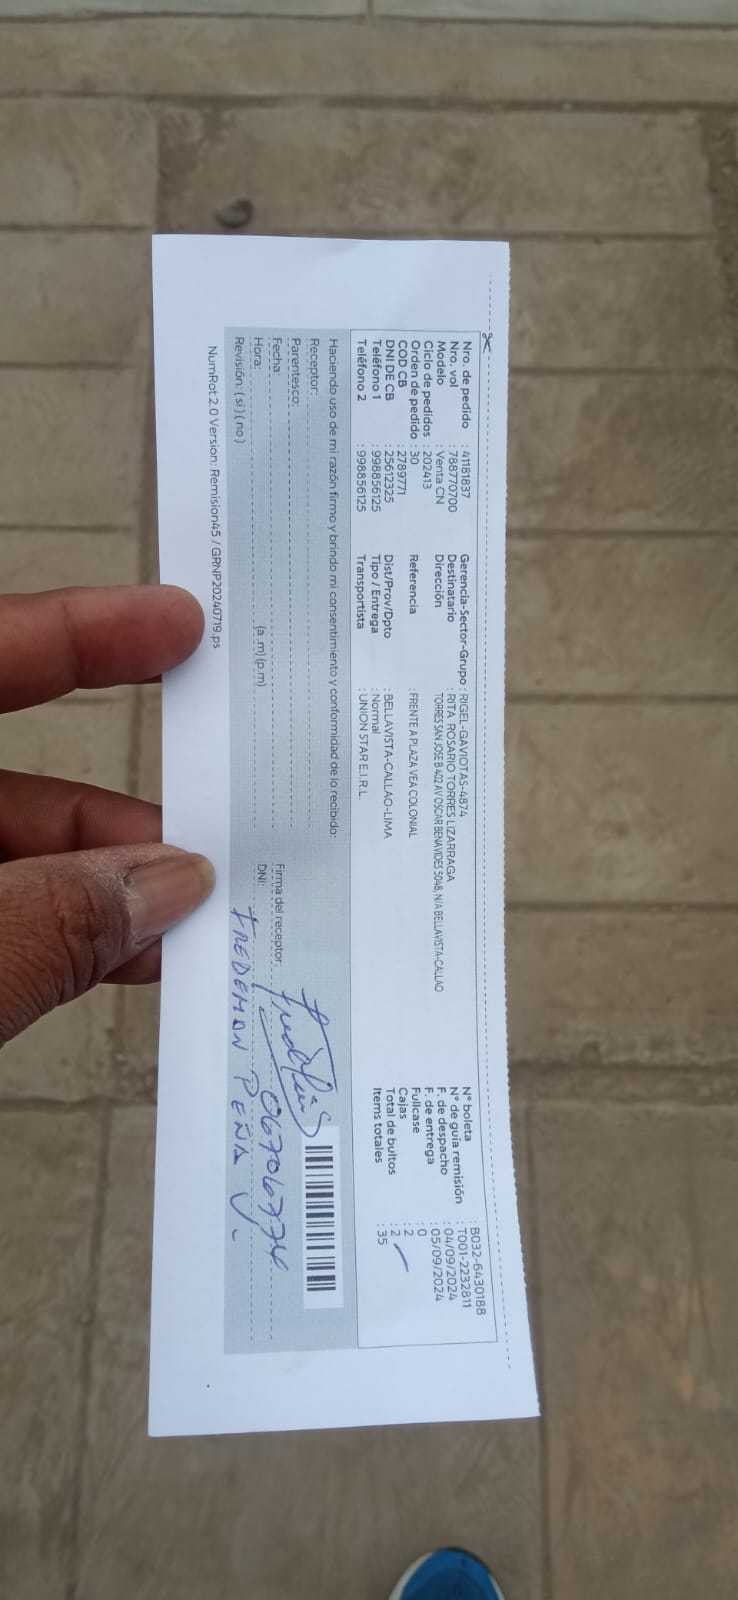 Nro. de pedido : 41181837
Nro. vol : 788770700
Modelo : Venta CN
Ciclo de pedidos : 202413
Orden de pedido : 30
COD CB : 2789771
DNI DE CB : 25612325
Teléfono 1 : 998856125
Teléfono 2 : 998856125
Gerencia-Sector-Grupo : RIGEL-GAVIOTAS-4874
Destinatario : RITA ROSARIO TORRES LIZARRAGA
Dirección TORRES SAN JOSE B 402 AV OSCAR BENAVIDES 5048, N/A BELLAVISTA-CALLAO
Referencia : FRENTE A PLAZA VEA COLONIAL
Dist/Prov/Dpto : BELLAVISTA-CALLAO-LIMA
Tipo / Entrega : Normal
Transportista : UNION STAR E.I.R.L.
N° boleta : B032-6430188
N° de guía remisión : T001-2232811
F. de despacho : 04/09/2024
F. de entrega : 05/09/2024
Fullcase : 0
Cajas : 2
Total de bultos : 2
Items totales : 35
Haciendo uso de mi razón firmo y brindo mi consentimiento y conformidad de lo recibido:
Receptor:
Parentesco:
Fecha:
Hora: (a .m) (p.m)
Revisión: ( si ) ( no )
Firma del receptor:
DNI:
FREDEMAN PEÑA V.
NumRot 2.0 Version: Remision45 / GRNP20240719.ps